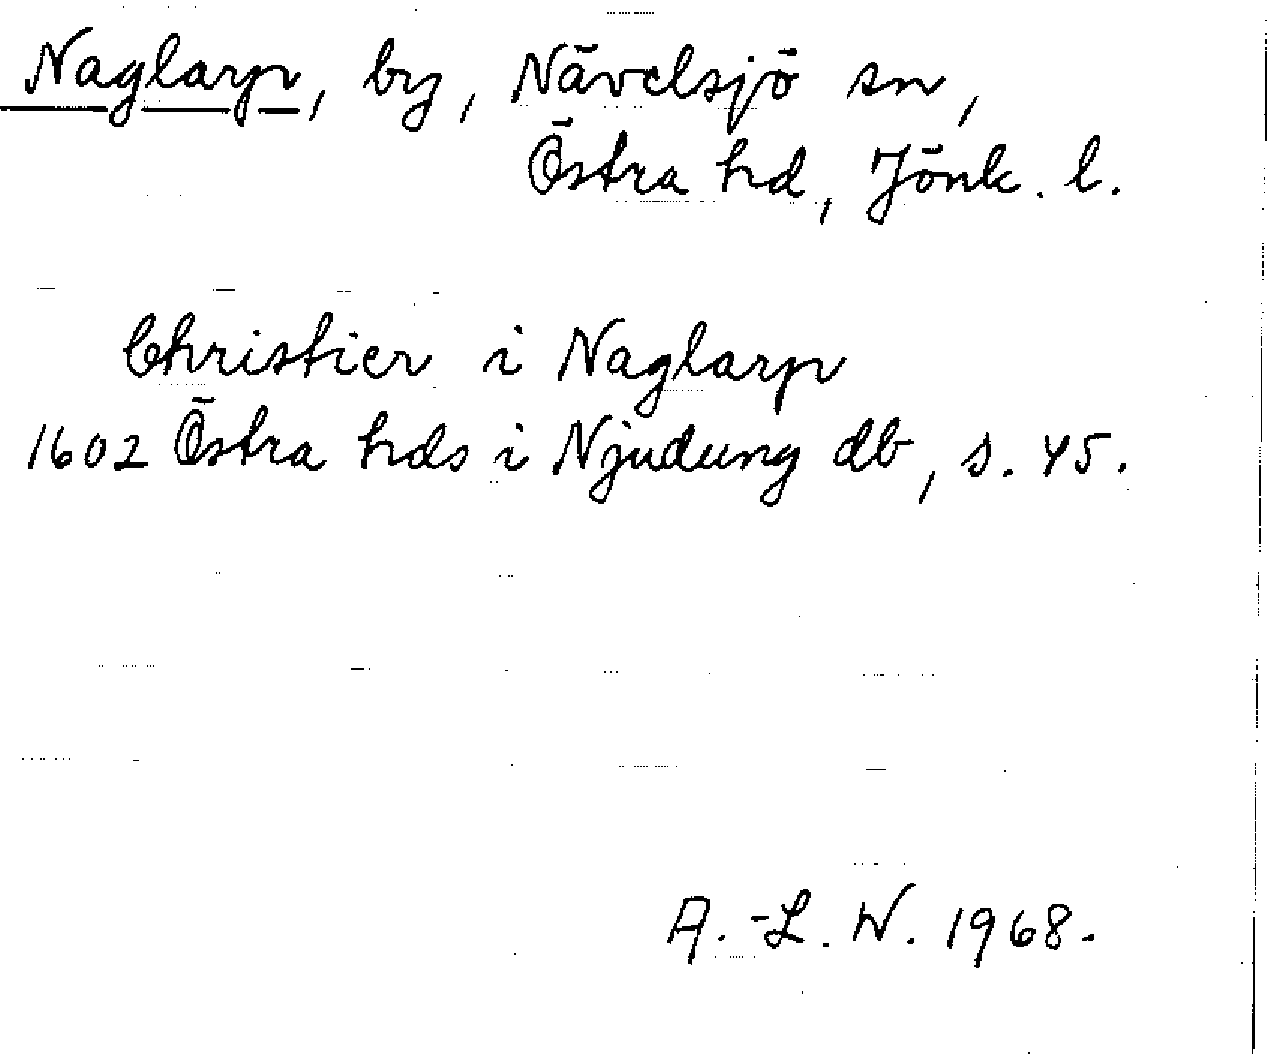 Naglarp, by, Nävelsjö sn,
Östra hd, Jönk. l.
Christier i Naglarp
1602 Östra hds i Njudung db, s. 45.
A.-L. W. 1968.